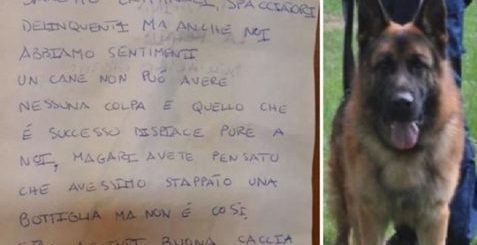 SPACCIATORI
DELINQUENTI MA ANCHE NOI
ABBIAMO SENTIMENTI
UN CANE NON PUÓ AVERE
NESSUNA COLPA E QUELLO CHE
É SUCCESSO DISPIACE PURE A
NOI, MAGARI AVETE PENSATO
CHE AVESSIMO STAPPATO UNA
BOTTIGLIA MA NON É COSÍ
BUONA CACCIA